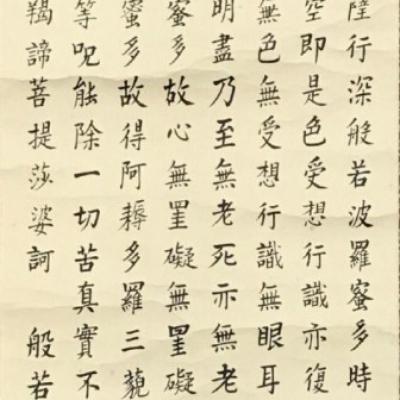 陸行深般若波羅蜜多時
空即是色受想行識亦復
無色無受想行識無眼耳
明盡乃至無老死亦無老
蜜多故心無罣礙無罣礙
蜜多故得阿耨多羅三藐
等呪能除一切苦真實不
羯諦菩提莎婆訶 般若